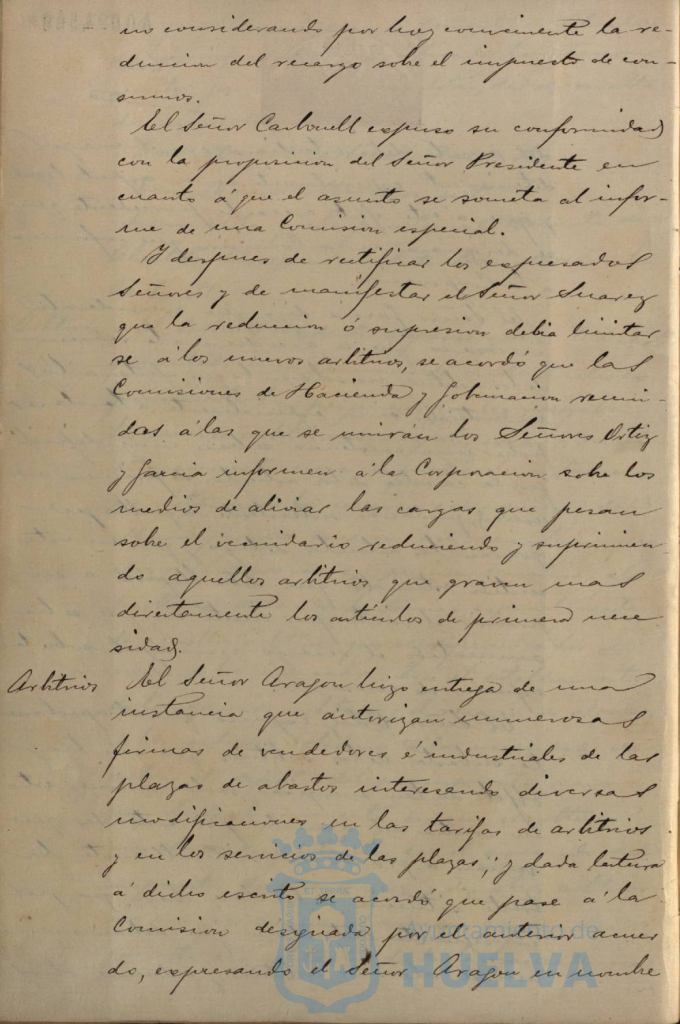 no considerando por hoy conveniente la re-
duccion del recargo sobre el impuesto de con-
sumos.
El Señor Carbonell expuso su conformidad
con la proposicion del Señor Presidente en
cuanto á que el asunto se someta al infor-
me de una Comision especial.
Y despues de rectificar los expresados
Señores y de manifestar el Señor Suarez
que la reduccion ó supresion debia limitar
se á los nuevos arbitrios, se acordó que las
Comisiones de Hacienda y Gobernacion reuni-
das á las que se unirán los Señores Ortiz
y Garcia informen á la Corporacion sobre los
medios de aliviar las cargas que pesan
sobre el vecindario reduciendo y suprimien-
do aquellos arbitrios que gravan mas
directamente los artículos de primera nece
sidad.
Arbitrios
El Señor Aragon hizo entrega de una
instancia que autorizan numerosas
firmas de vendedores é industriales de las
plazas de abastos interesando diversas
modificaciones en las tarifas de arbitrios
y en los servicios de las plazas; y dada lectura
á dicho escrito se acordó que pase á la
Comision designada por el anterior acuer
do, expresando el Señor Aragon en nombre
Ayuntamiento de
HUELVA